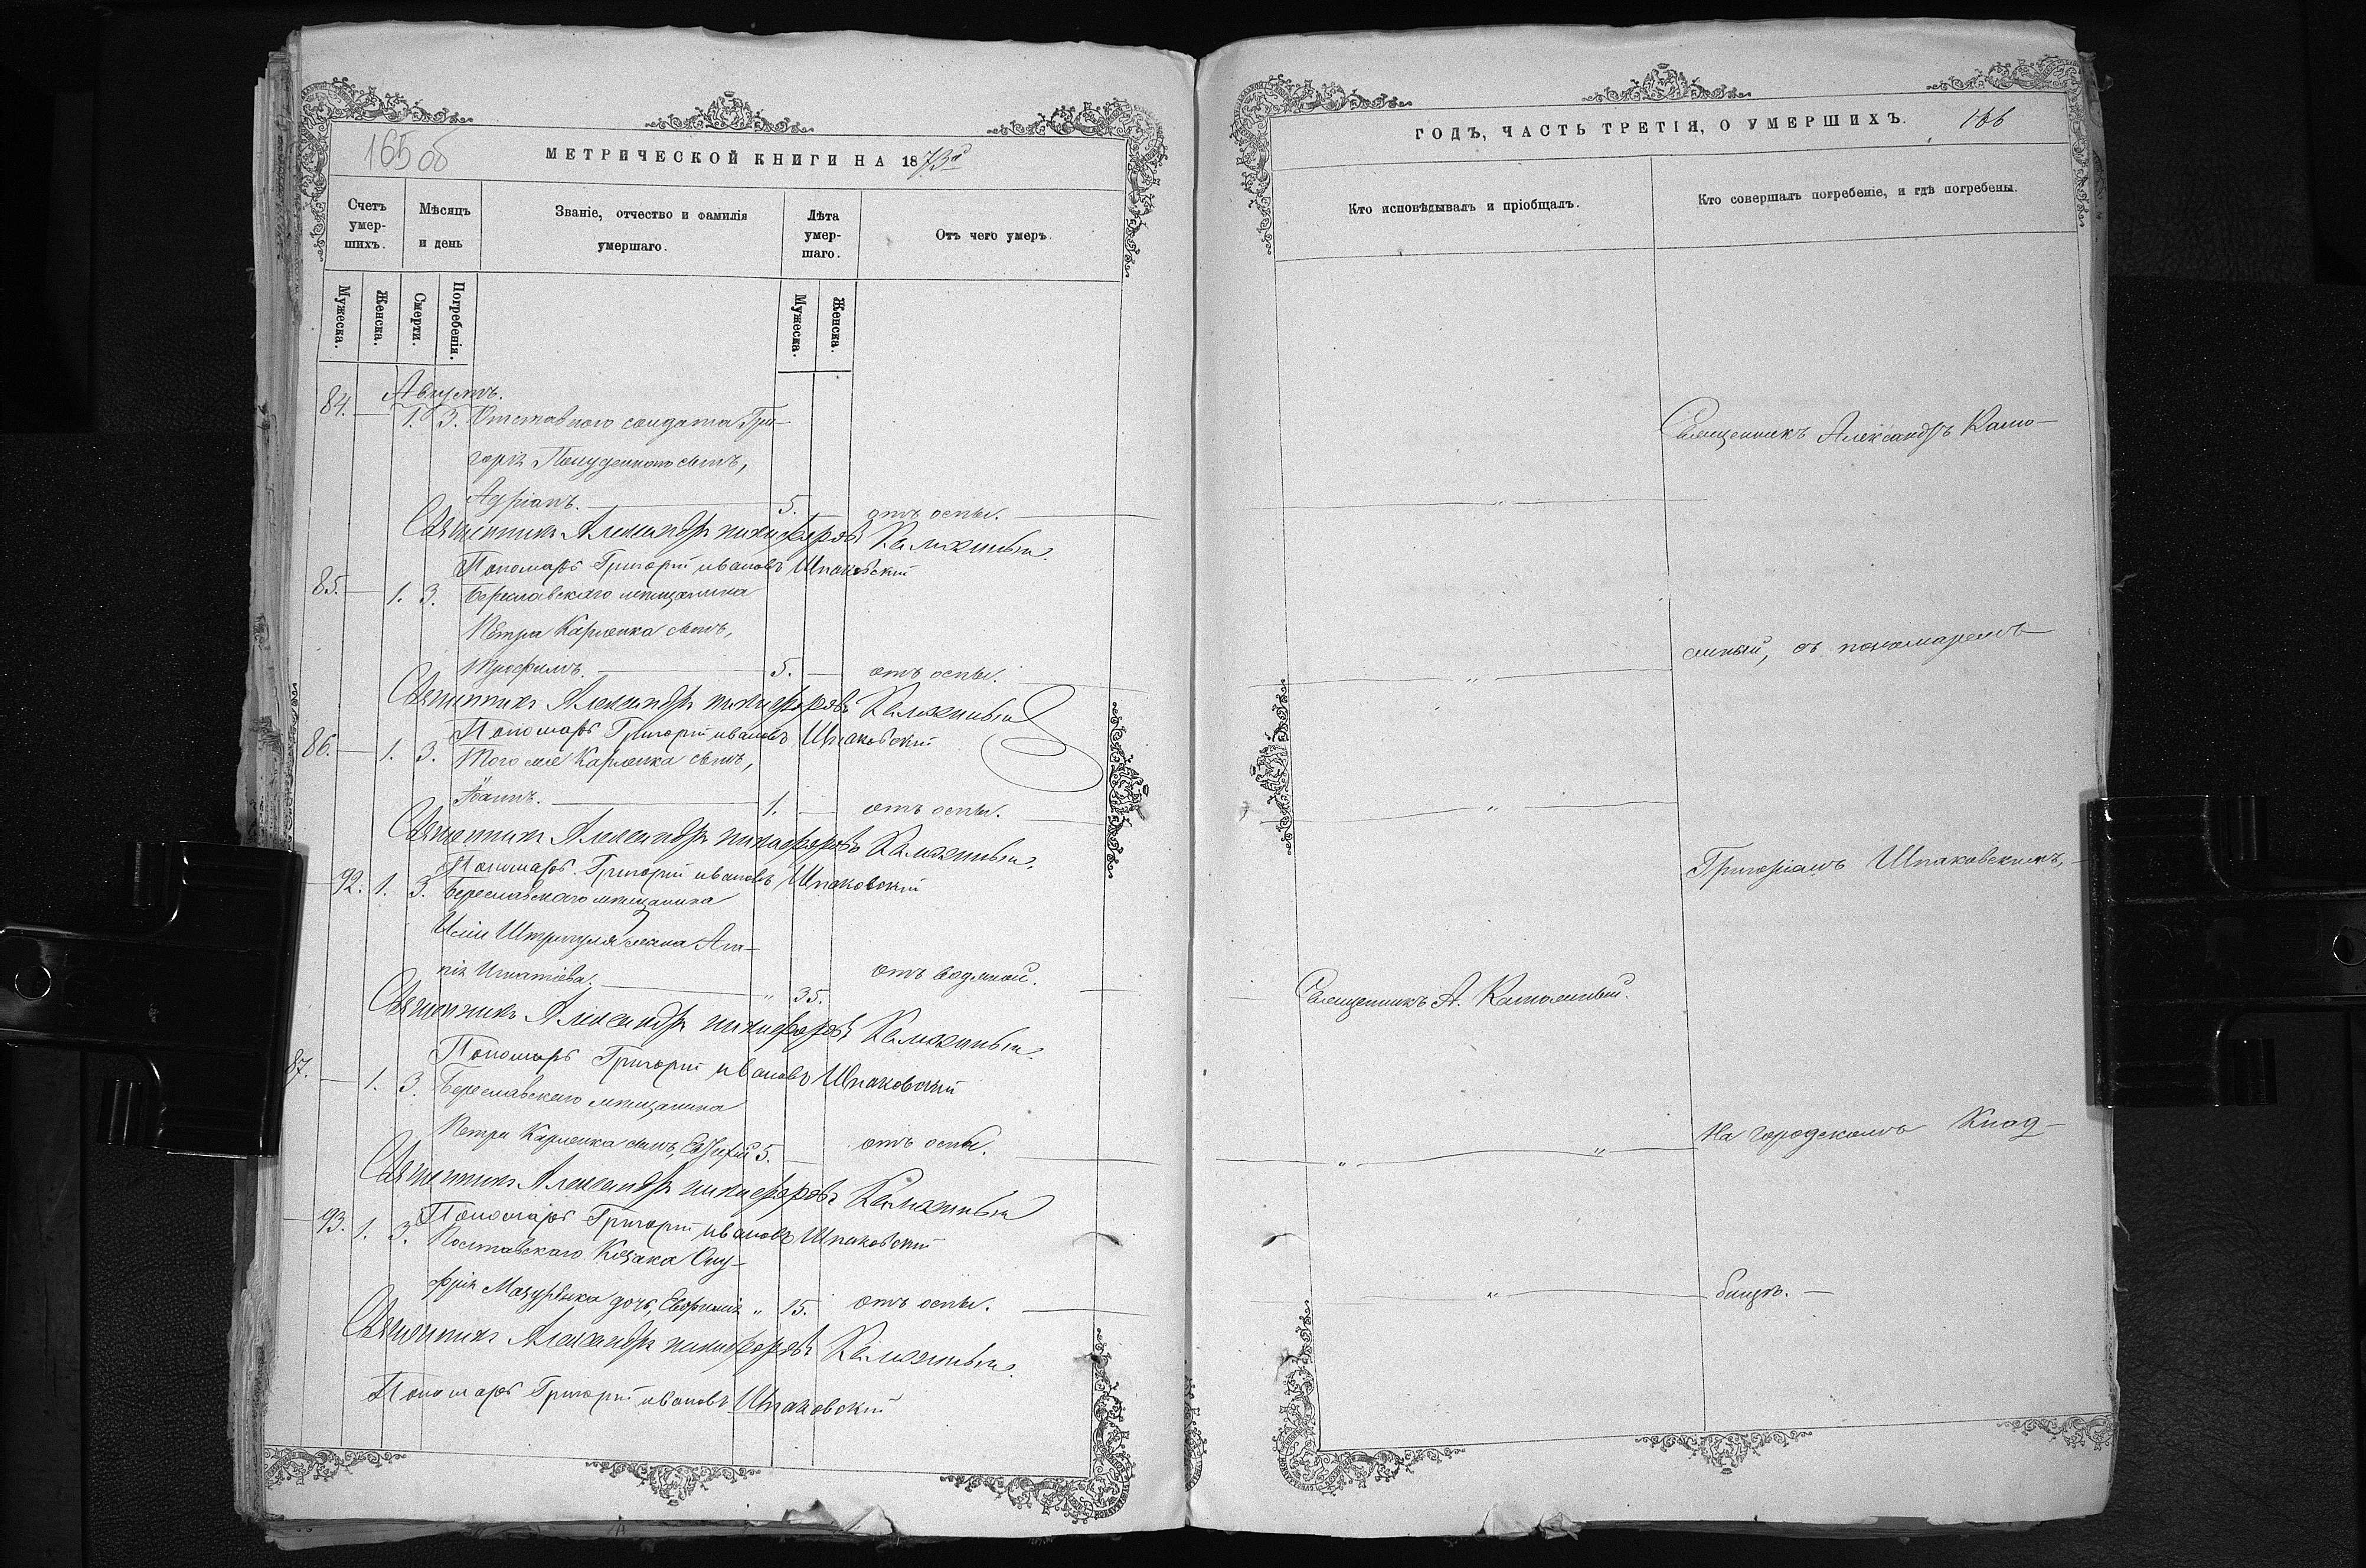 165 об
МЕТРИЧЕСКОЙ КНИГИ НА 1873й
Счетъ умер-шихъ.
Мѣсяцъ и день
Званіе, отчество и фамилія умершаго.
Лѣта умер-шаго.
Отъ чего умеръ.
Мужеска.
Женска.
Смерти.
Погребенія.
Мужеска.
Женска.
Августъ.
84. — 1. 3. Отставного солдата Гри-
горія сынъ,
Адріанъ. — 5. отъ оспы.
Священникъ Александръ Никифоровъ
Пономарь Григорій Ивановъ Шпаковскій
85. — 1. 3. Бериславскаго мѣщанина
Петра Карленка сынъ,
Трофимъ. — 5. — отъ оспы.
Священникъ Александръ Никифоровъ
Пономарь Григорій Ивановъ Шпаковскій
86. — 1. 3. Того же Карленка сынъ,
Іоаннъ. — 1. — отъ оспы.
Священникъ Александръ Никифоровъ
Пономарь Григорій Ивановъ Шпаковскій
— 92. 1. 3. Бериславскаго мѣщанина
Иліи жена Ага-
пія Игнатіева. — " 35. отъ водяной.
Священникъ Александръ Никифоровъ
Пономарь Григорій Ивановъ Шпаковскій
87. — 1. 3. Бериславскаго мѣщанина
Петра Карленка сынъ, 5. — отъ оспы.
Священникъ Александръ Никифоровъ
Пономарь Григорій Ивановъ Шпаковскій
— 93. 1. 3. Козака Ону-
фрія дочь, Евфимія " 15. отъ оспы.
Священникъ Александръ Никифоровъ
Пономарь Григорій Ивановъ Шпаковскій
ГОДЪ, ЧАСТЬ ТРЕТІЯ, О УМЕРШИХЪ.
166
Кто исповѣдывалъ и пріобщалъ.
Кто совершалъ погребеніе, и гдѣ погребены.
Священникъ Александръ
съ пономаремъ
Григоріемъ Шпаковскимъ,
Священникъ А.
На городскомъ Клад-
бищѣ. —